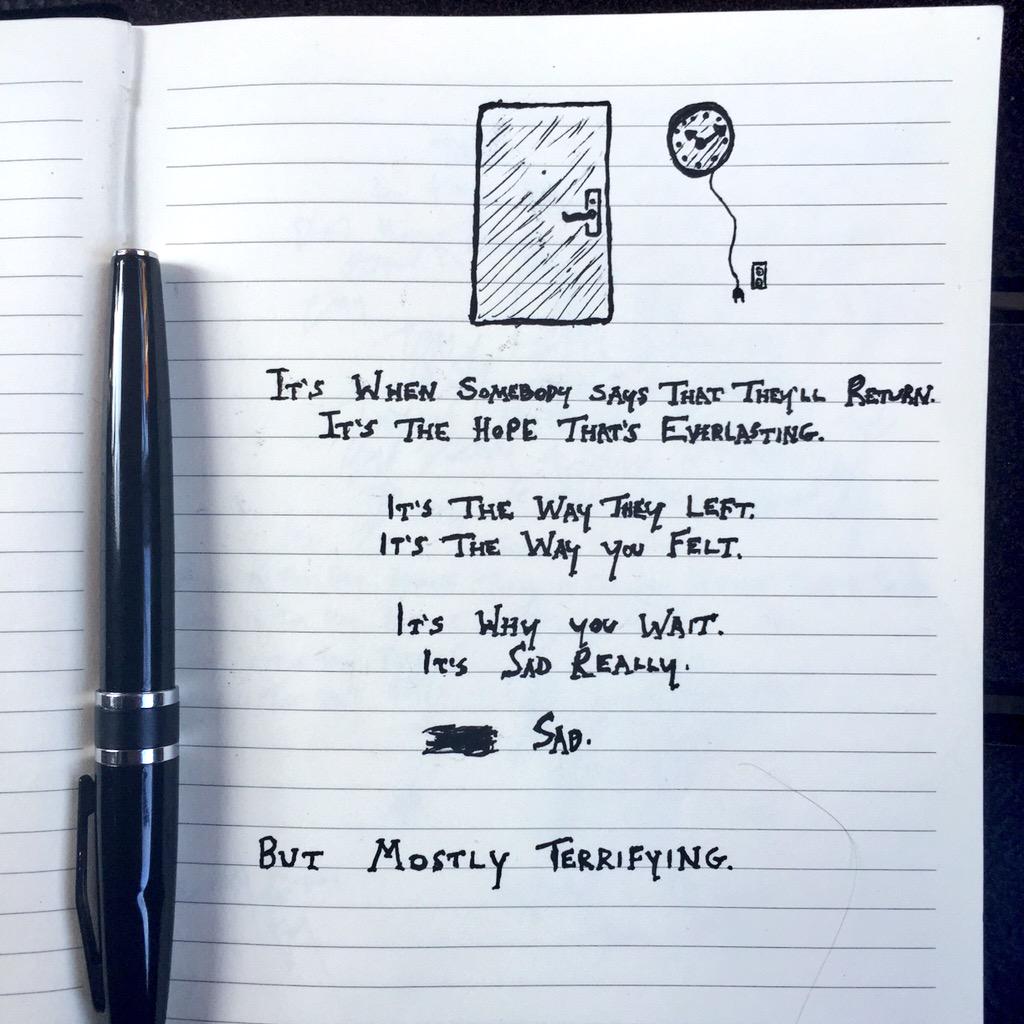 It's When Somebody says That They'll Return.
It's the Hope That's Everlasting.
It's the Way They Left.
It's the Way you Felt.
It's Why you Wait.
It's Sad Really.
Sad.
But Mostly Terrifying.